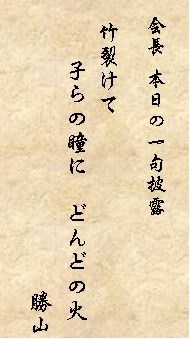 会長 本日の一句披露
竹裂けて
子らの瞳に どんどの火
勝山